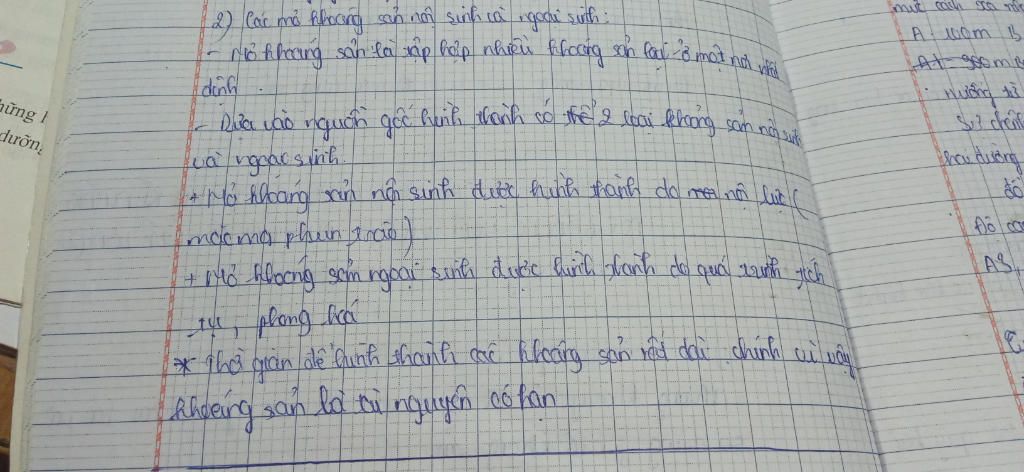 2) Các mỏ khoáng sản nội sinh và ngoại sinh:
- Mỏ khoáng sản là tập hợp nhiều khoáng sản lại ở một nơi nhất
định.
- Dựa vào nguồn gốc hình thành có thể 2 loại khoáng sản nội sinh
và ngoại sinh.
+ Mỏ khoáng sản nội sinh được hình thành do nội lực (
mácma phun trào)
+ Mỏ khoáng sản ngoại sinh được hình thành do quá trình tích
tụ, phong hoá
* Thời gian để hình thành các khoáng sản rất dài chính vì vậy
khoáng sản là tài nguyên có hạn
hững
dưỡng
A 100m B
900m
Hướng từ
đường
AS